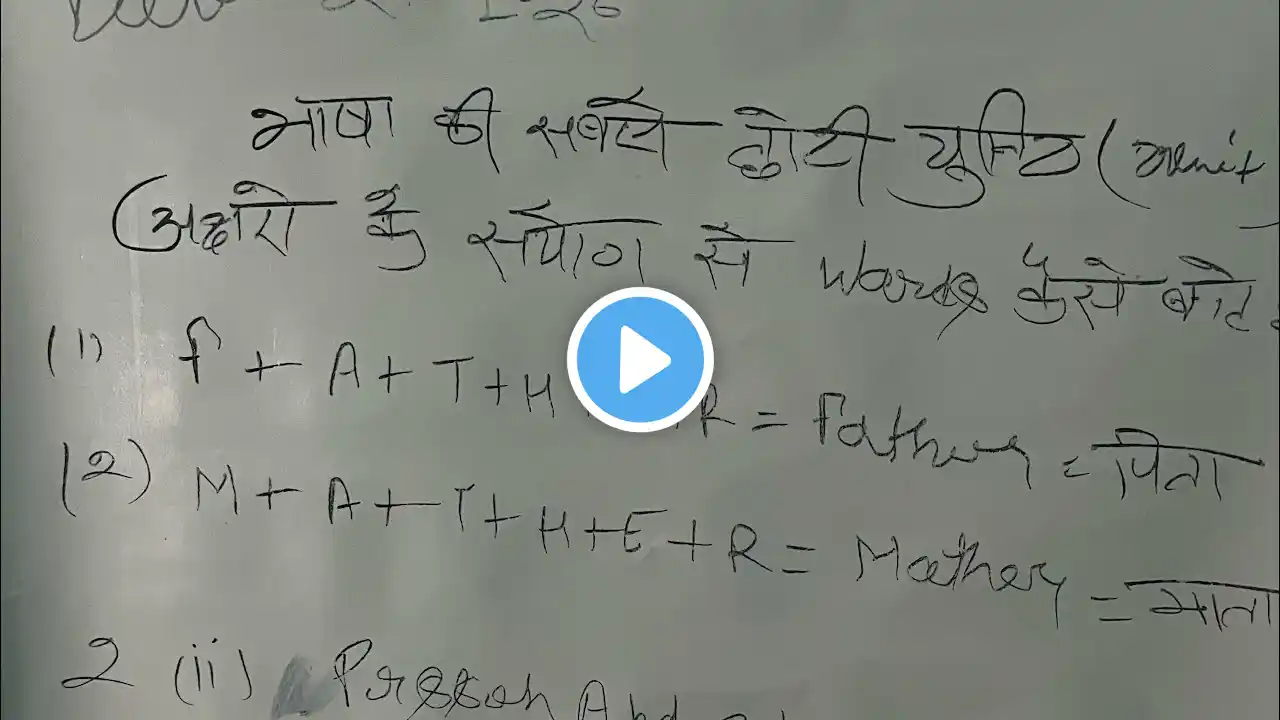 भाषा की सबसे छोटी यूनिट (unit
(अक्षरो के संयोग से Words कैसे
(1) F + A + T + H R = Father = पिता
(2) M + A + T + H + E + R = Mather = माता
2 (ii)